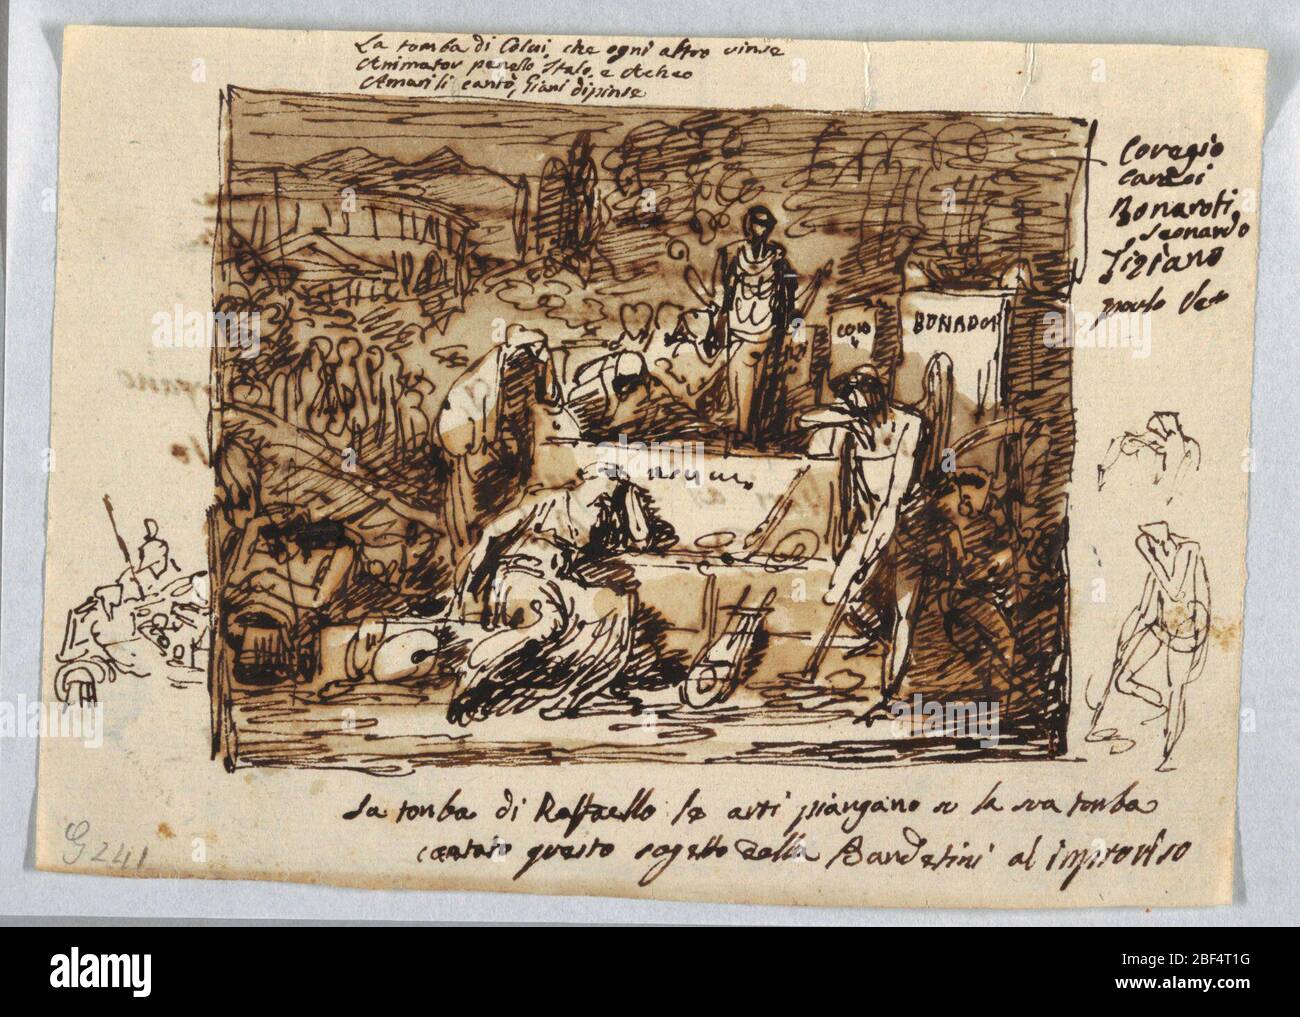 La tomba di Colui, che ogni altro vinse
Animator penello Italo, e Acheo
Amarili cantò, Giani dipinse
Coregio
Bonaroti
Leonardo
Tiziano
BONADOR
La tomba di Raffaello le arti piangano su la sua tomba
cantato questo sogetto dalla Bandetini al improviso
G 241
alamy
Image ID: 2BF4T1G
www.alamy.com